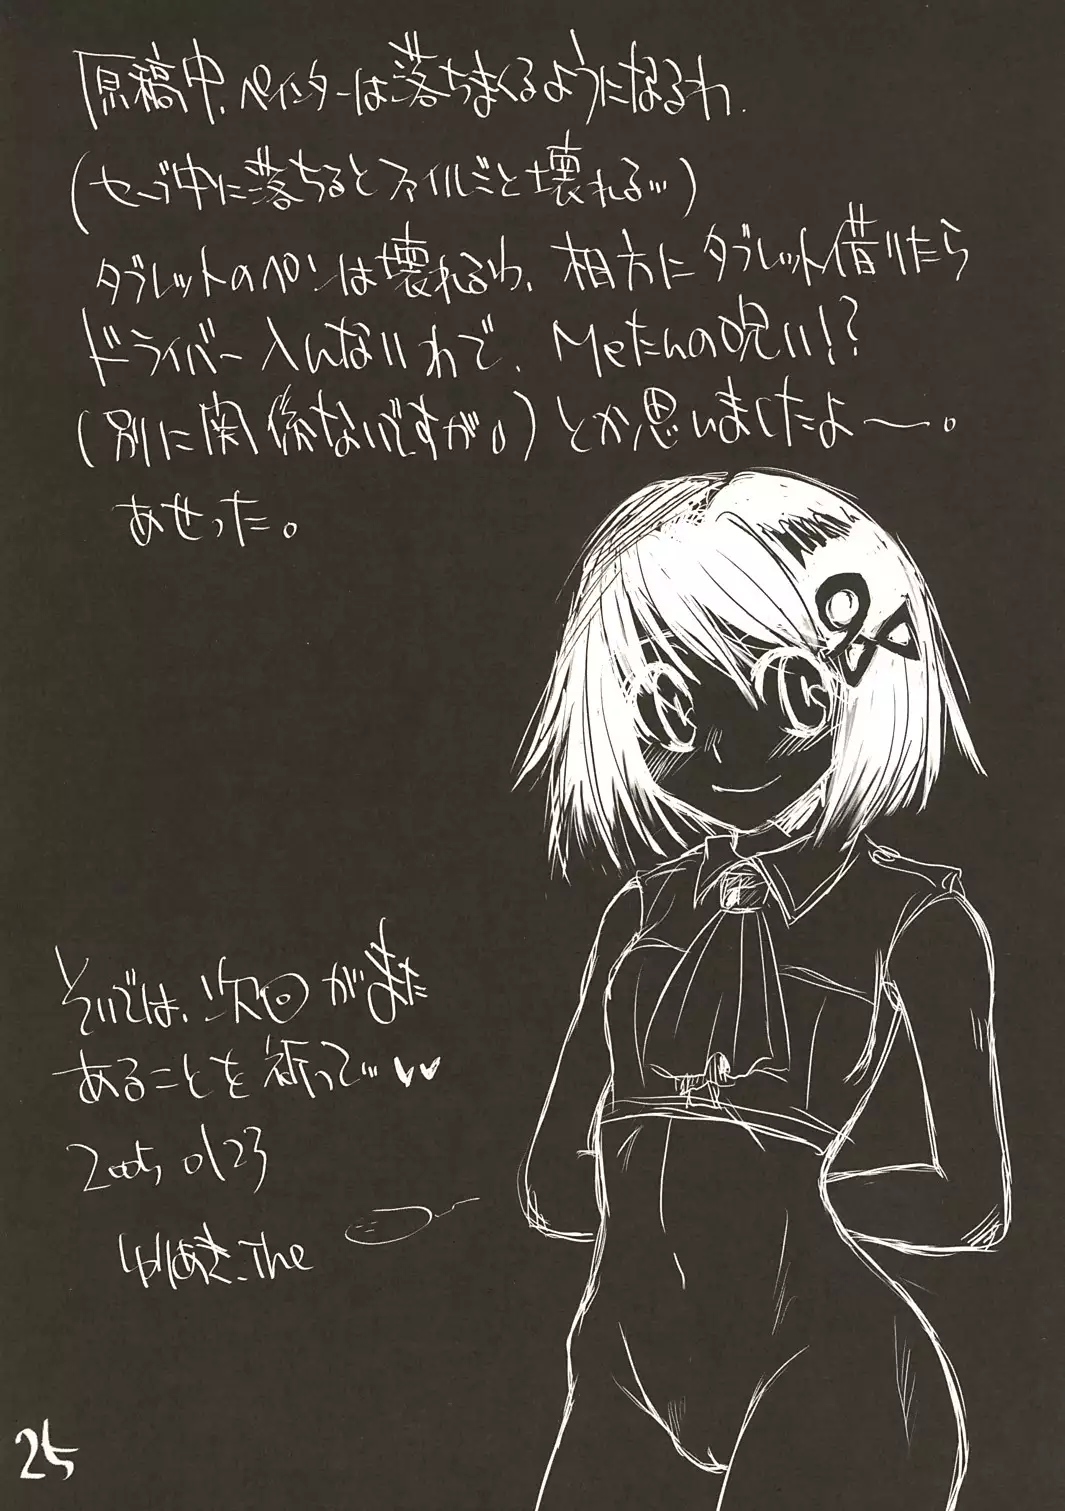 原稿中、ペインターは落ちまくるようになるわ、
(セーブ中に落ちるとファイルごと壊れる…)
タブレットのペンは壊れるわ、相方にタブレット借りたら
ドライバー入んないわで、Meたんの呪い!?
(別に関係ないですが。)とか思いましたよ〜。
あせった。
それでは、次回がまた
あることを祈って…♥♥
2005 01/23
ゆりあき.The
25